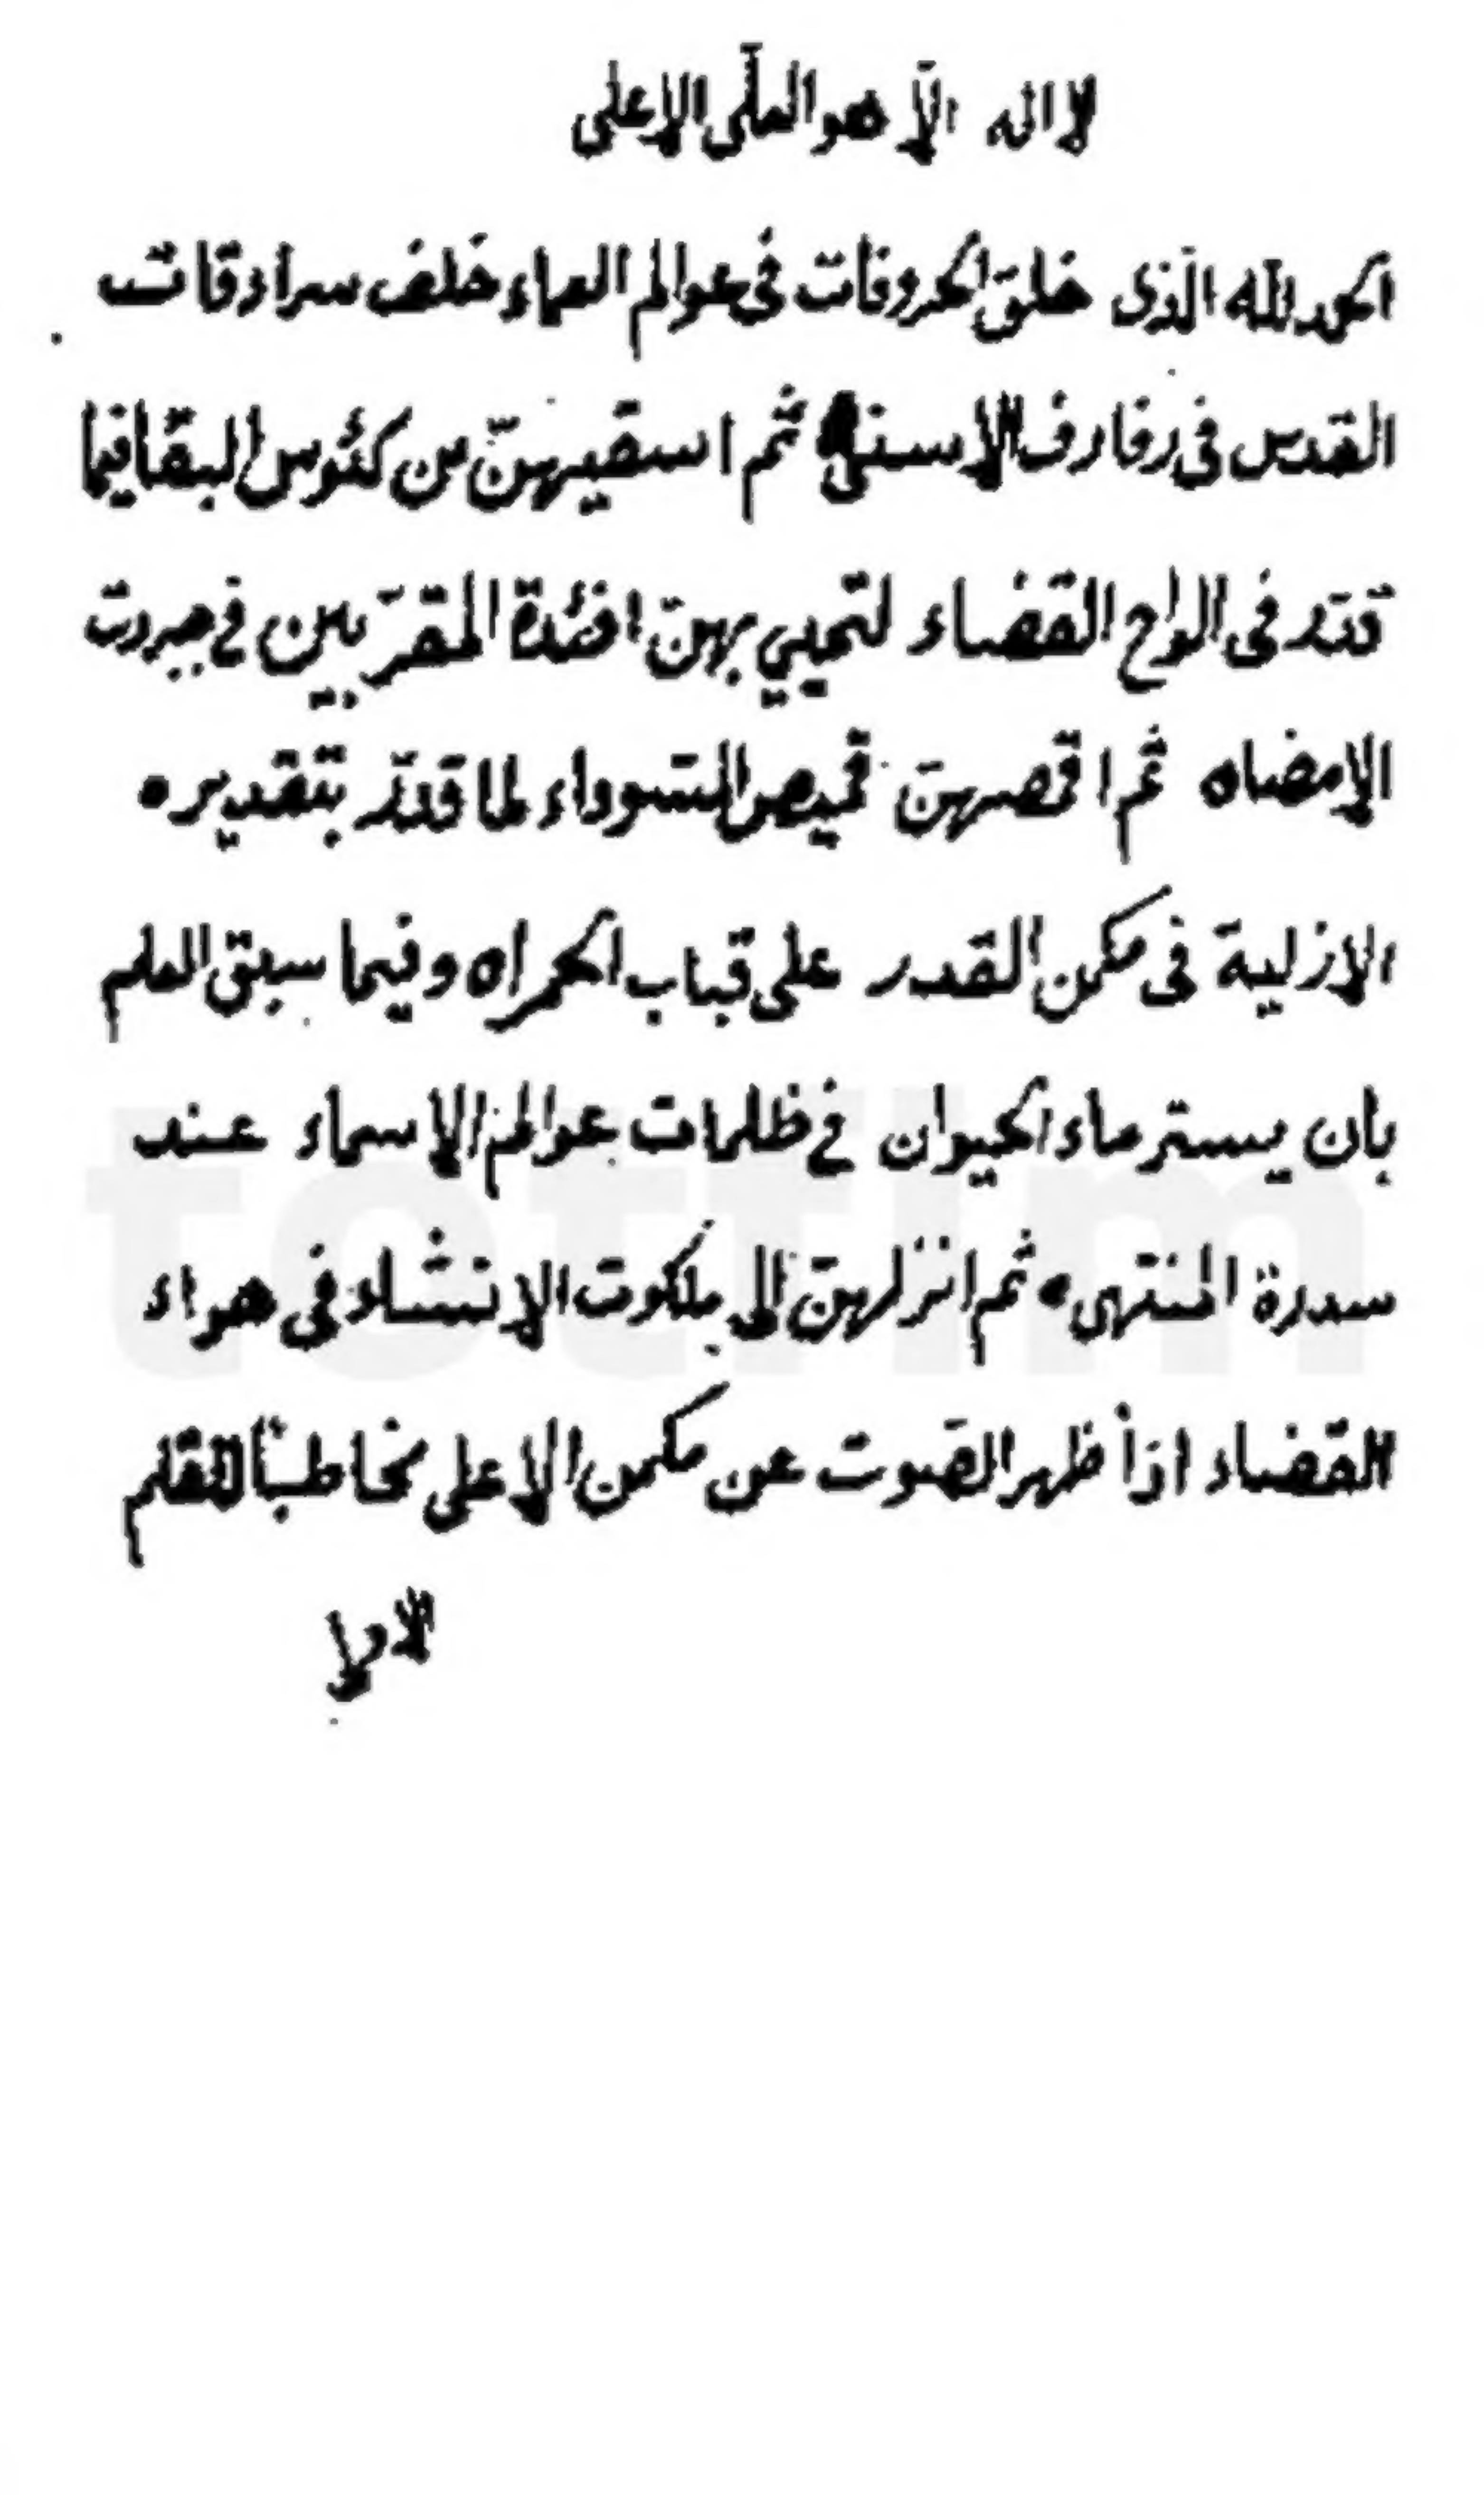 لا اله الّا هو العلّى الاعلى
الحمد لله الّذى خلق الحروفات فى عوالم العماء خلف سرادقات
القدس فى رفارف الاسنى ثم اسقيهنّ من كئوس البقا فيما
قدّر فى الواح القضاء لتحيي بهنّ افئدة المقرّبين فى جبروت
الامضاه ثم اقمصهنّ قميص السّوداء لما قدّر بتقديره
الازلية فى مكمن القدر على قباب الحمراه وفيما سبق العلم
بان يستر ماء الحيوان فى ظلمات عوالم الاسماء عند
سدرة المنتهى ثم انزلهنّ الى ملكوت الانشاء فى هواء
القضاء اذاً ظهر الصّوت عن مكمن الاعلى مخاطباً للقلم
الاولا
totfim